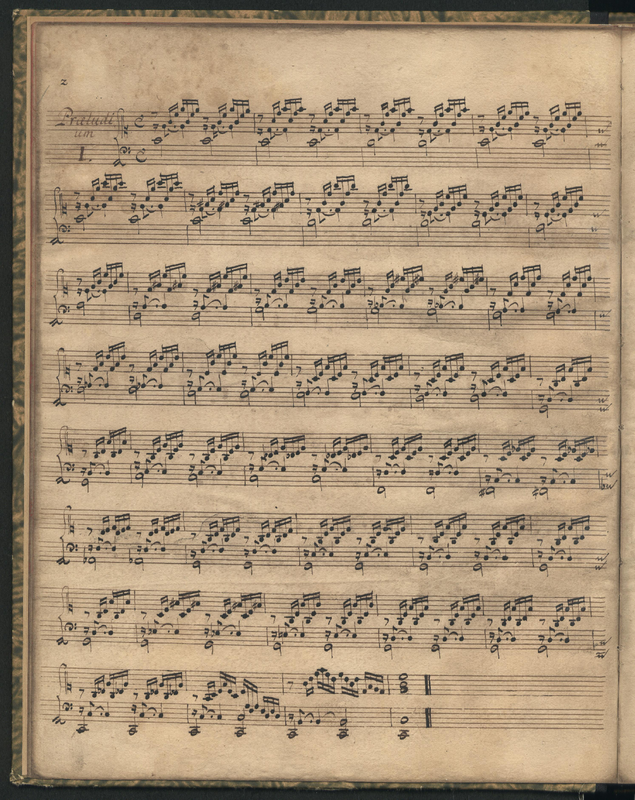 2
Præludi
um
I.